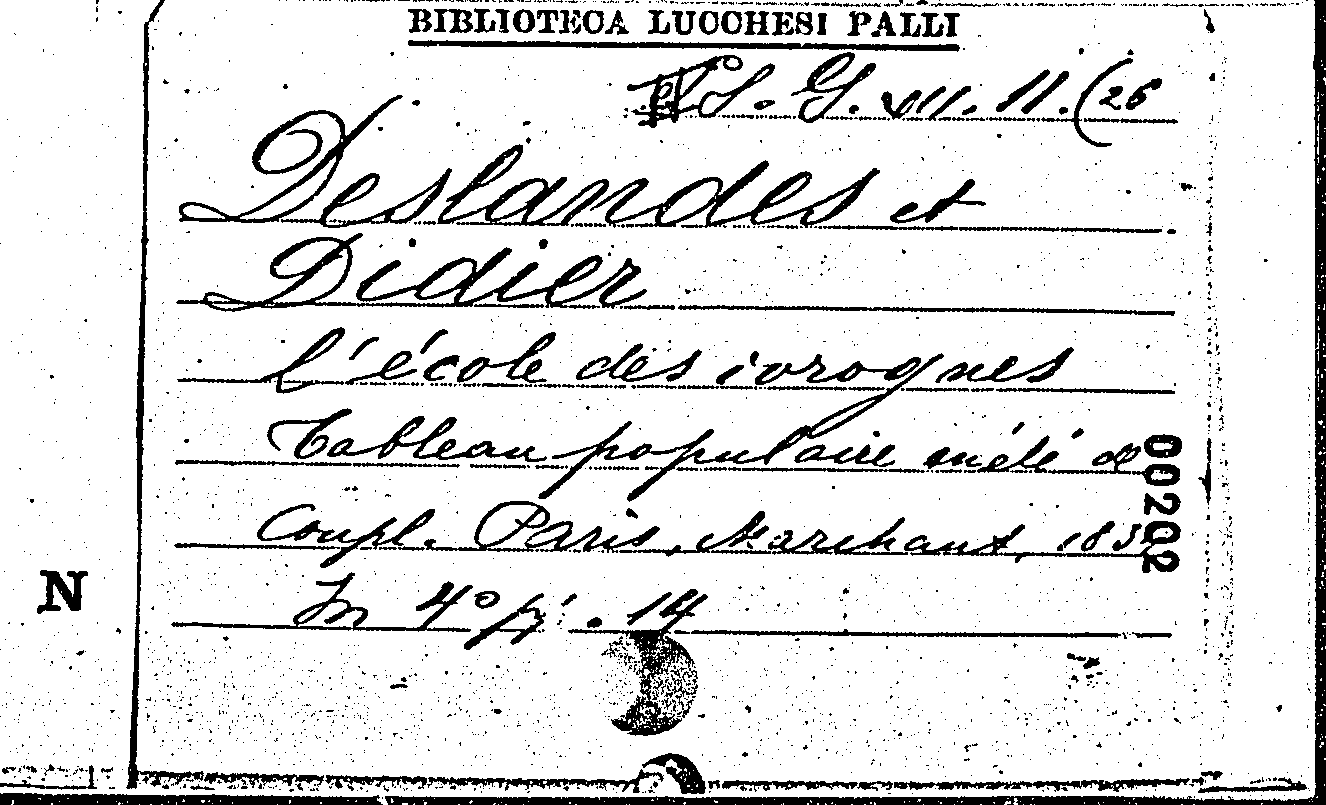 BIBLIOTECA LUCCHESI PALLI
L. G. VII. 11. (26
Deslandes et
Didier
l'école des ivrognes
Tableau populaire mêlé de
Coupl. Paris, Marchant, 183
In 4° pg. 14
00202
N